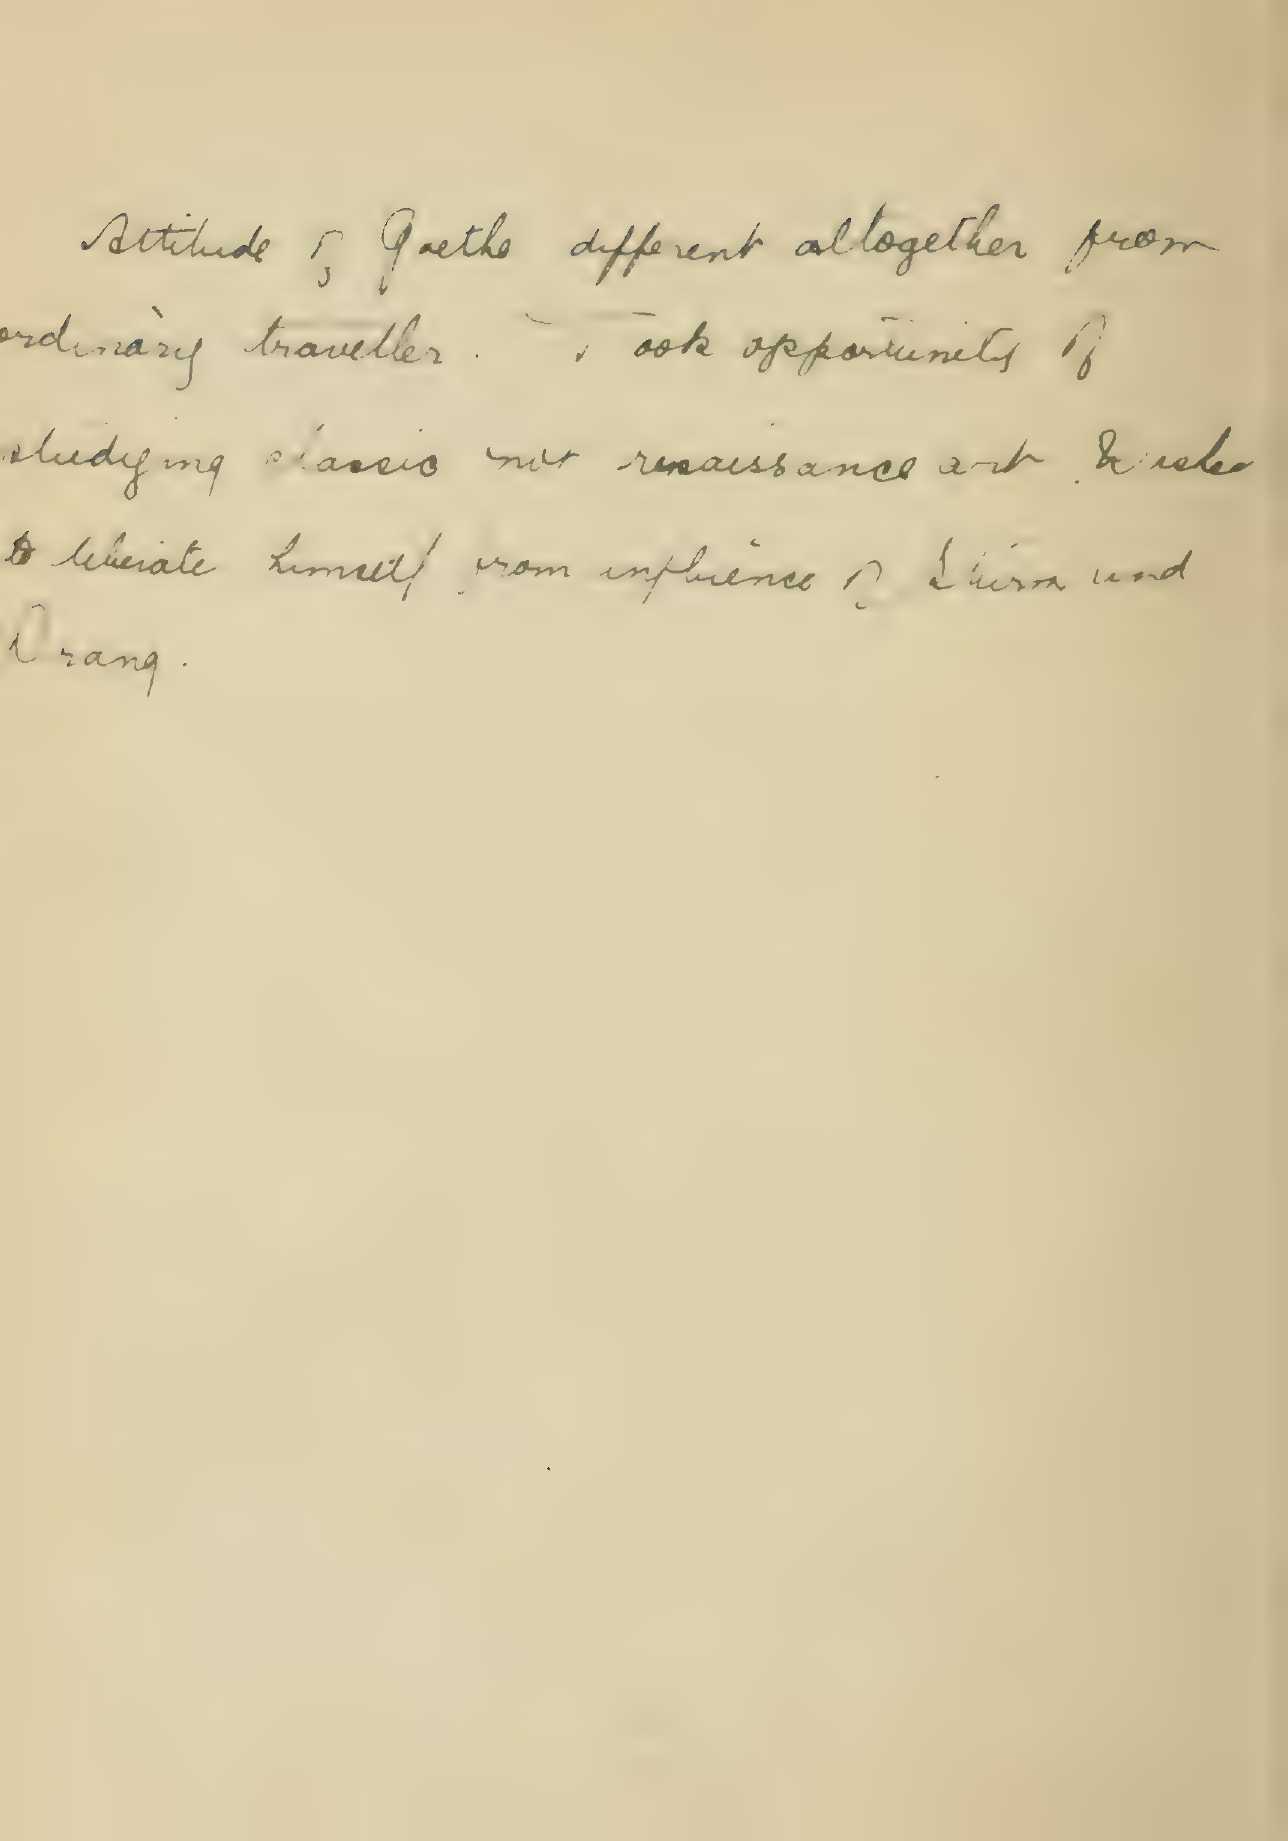 Attitude of Goethe different altogether from
ordinary traveller. Took opportunity of
studying classic not renaissance art.
to liberate himself from influence of Sturm und
Drang.